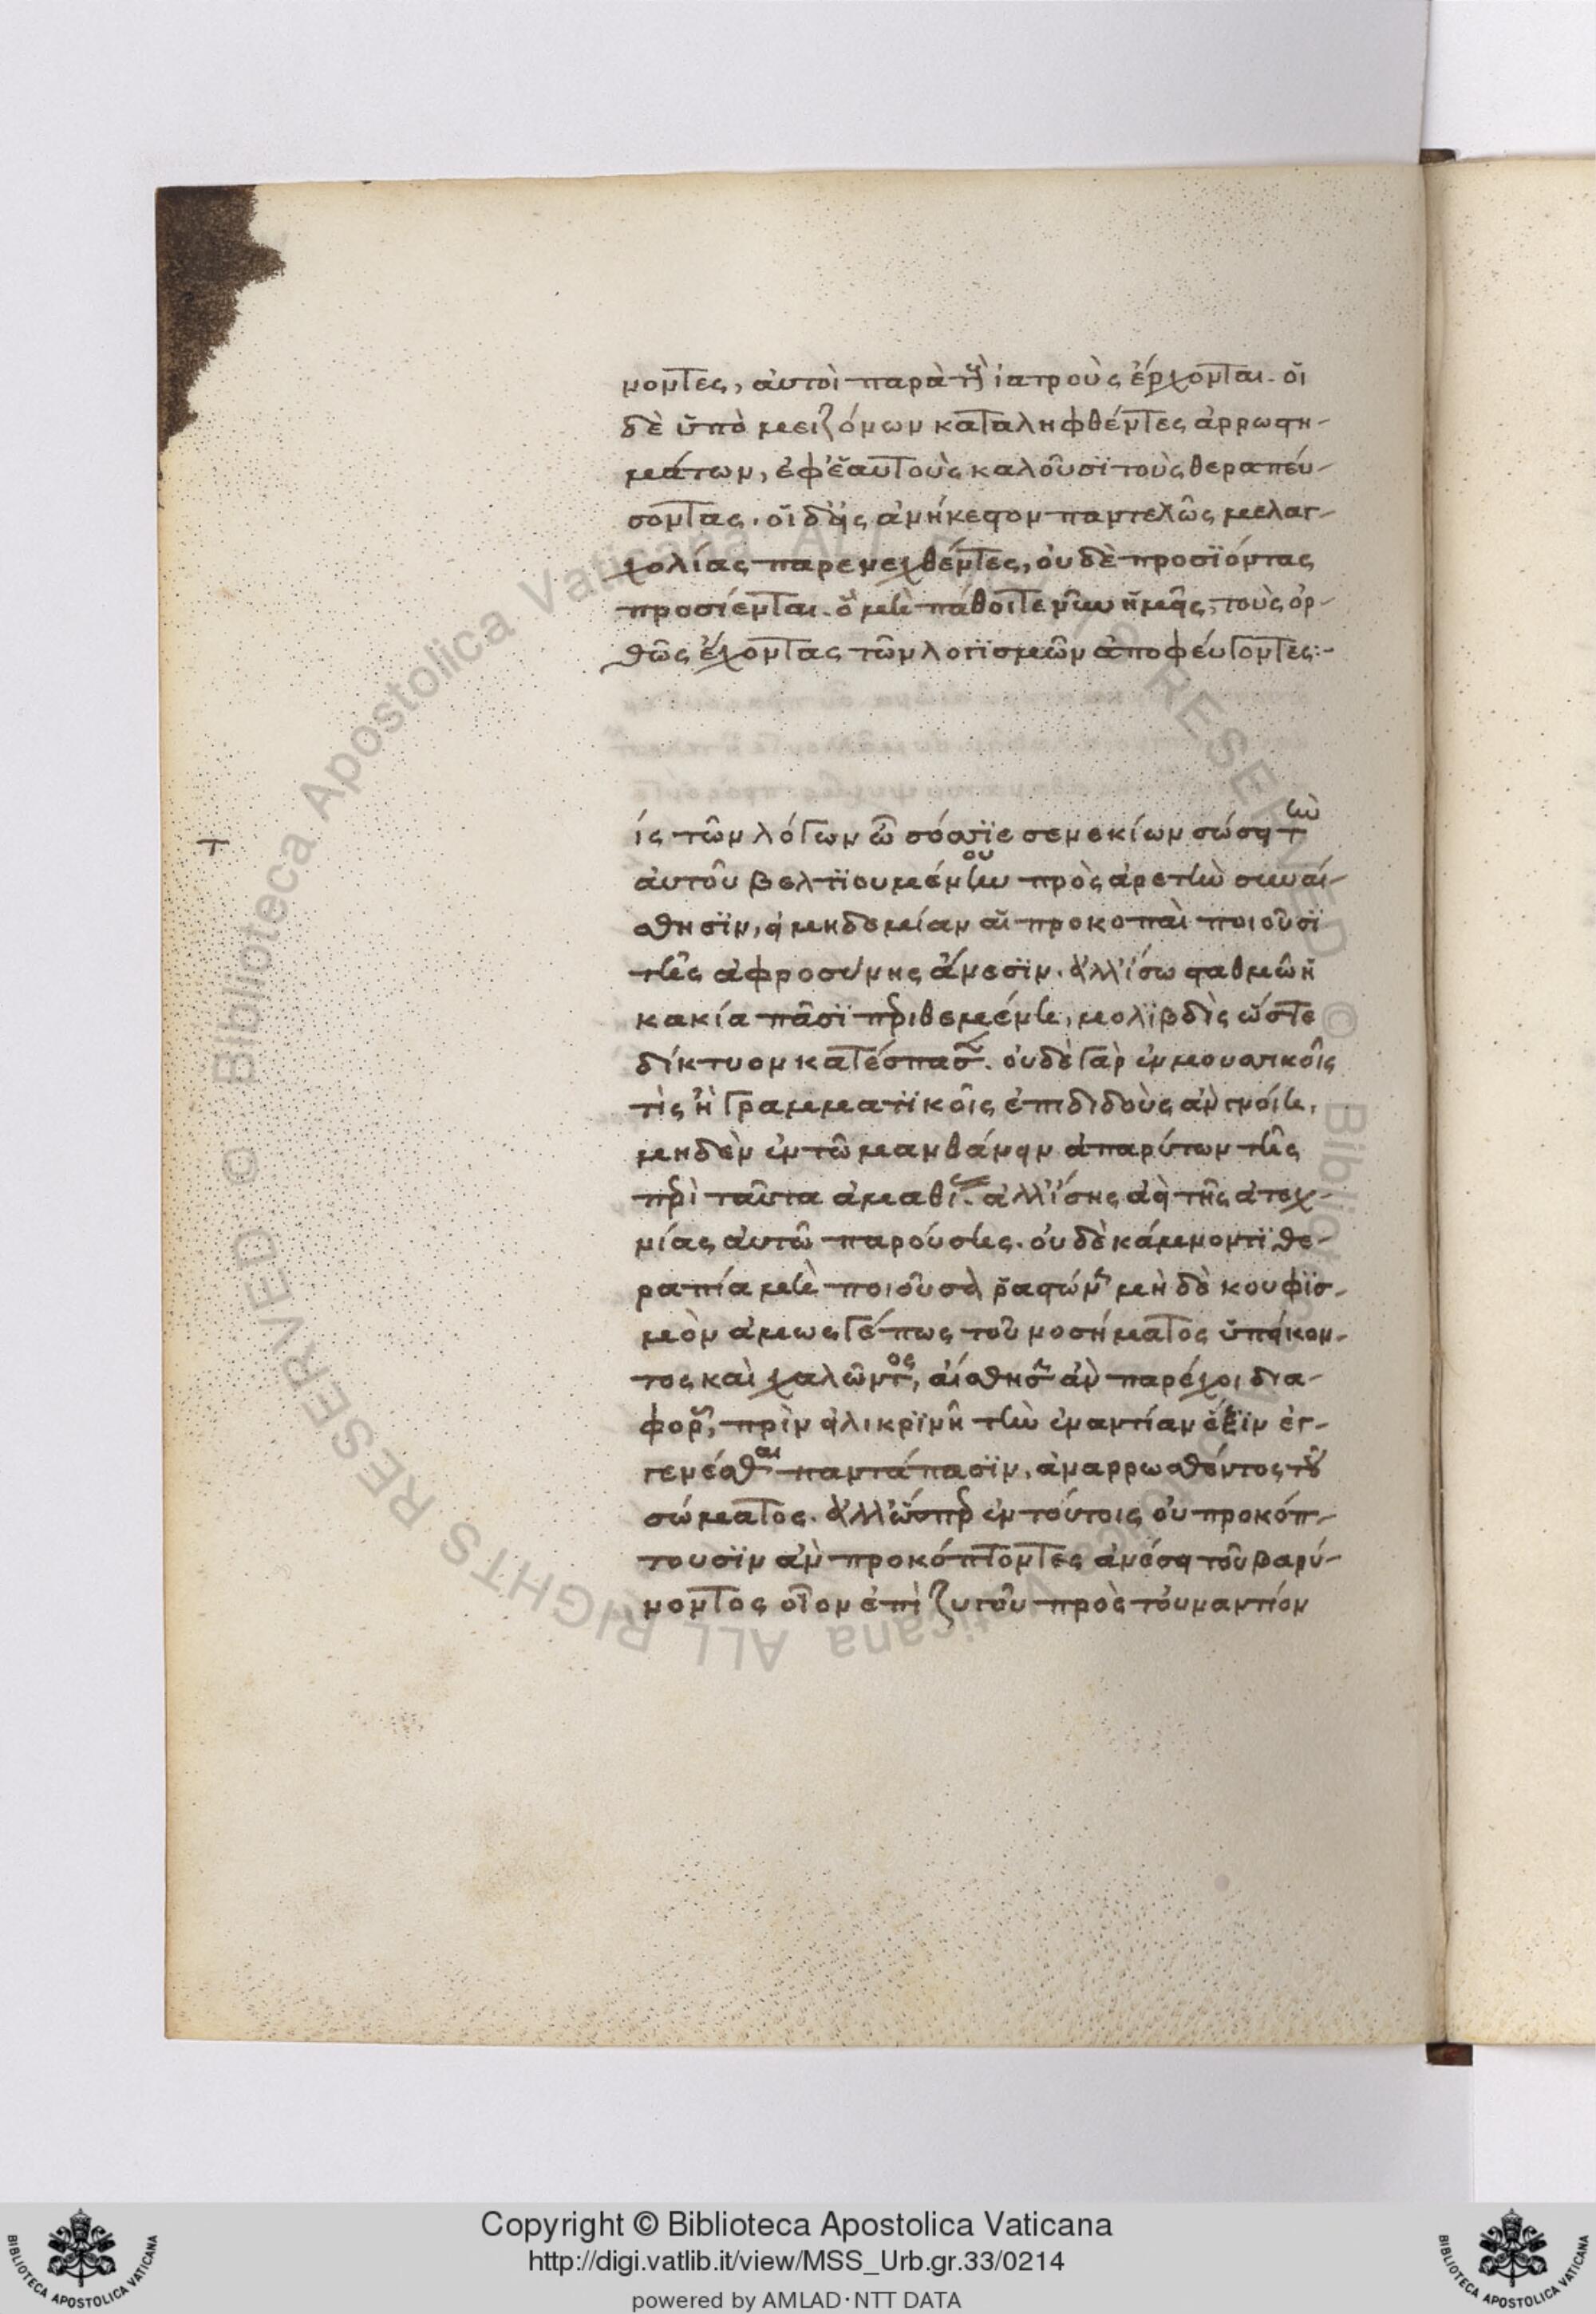 νοντες, αυτοὶ παρὰ τοὺς ἰατροὺς ἔρχονται. οἱ
δὲ ὑπὸ μειζόνων καταληφθέντες ἀρρωστη-
μάτων, ἐφ' ἑαυτοὺς καλοῦσι τοὺς θεραπεύ-
σοντας. οἱ δ' εἰς ἀνήκεστον παντελῶς μελαγ-
χολίας παρενεχθέντες, οὐδὲ προσϊόντας
προσίενται. ὃ μὴ πάθοιτε νῦν ἡμᾶς, τοὺς ὀρ-
θῶς ἔχοντας τῶν λογισμῶν ἀποφεύγοντες:-
Τ
ίς τῶν λόγων ὦ σόσσιε σενεκίων σώσει τὴν
αὑτοῦ βελτιουμένου πρὸς ἀρετὴν συναί-
σθησιν, εἰ μηδεμίαν αἱ προκοπαὶ ποιοῦσι
τῆς ἀφροσύνης ἄνεσιν. ἀλλ' ἴσω σταθμῶ ἡ
κακία πᾶσι περιθεμένη, μολιβδὶς ὥστε
δίκτυον κατέσπασεν. οὐδὲ γὰρ ἐν μουσικοῖς
τὶς ἢ γραμματικοῖς ἐπιδιδοὺς ἂν γνοίη,
μηδὲν ἐν τῶ μανθάνειν ἀπαρύτων τῆς
περὶ ταῦτα ἀμαθίας. ἀλλ' ἴσης ἀεὶ τῆς ἀτεχ-
νίας αὐτῶ παρούσης. οὐδὲ κάμνοντι θε-
ραπεία μὴ ποιοῦσα ῥαστώνην μὴ δὲ κουφισ-
μὸν ἁμωσγέπως τοῦ νοσήματος ὑπείκον-
τος καὶ χαλῶντος, αἴσθησιν ἂν παρέχοι δια-
φορᾶς, πρὶν εἰλικρινῆ τὴν ἐναντίαν ἕξιν ἐγ-
γενέσθαι παντάπασιν, ἀναρρωσθέντος τοῦ
σώματος. ἀλλ' ὥσπερ ἐν τούτοις οὐ προκόπ-
τουσιν ἂν προκόπτοντες ἀνέσει τοῦ βαρύ-
νοντος οἷον ἐπὶ ζυγοῦ πρὸς τοὐναντίον
Copyright © Biblioteca Apostolica Vaticana
http://digi.vatlib.it/view/MSS_Urb.gr.33/0214
powered by AMLAD·NTT DATA